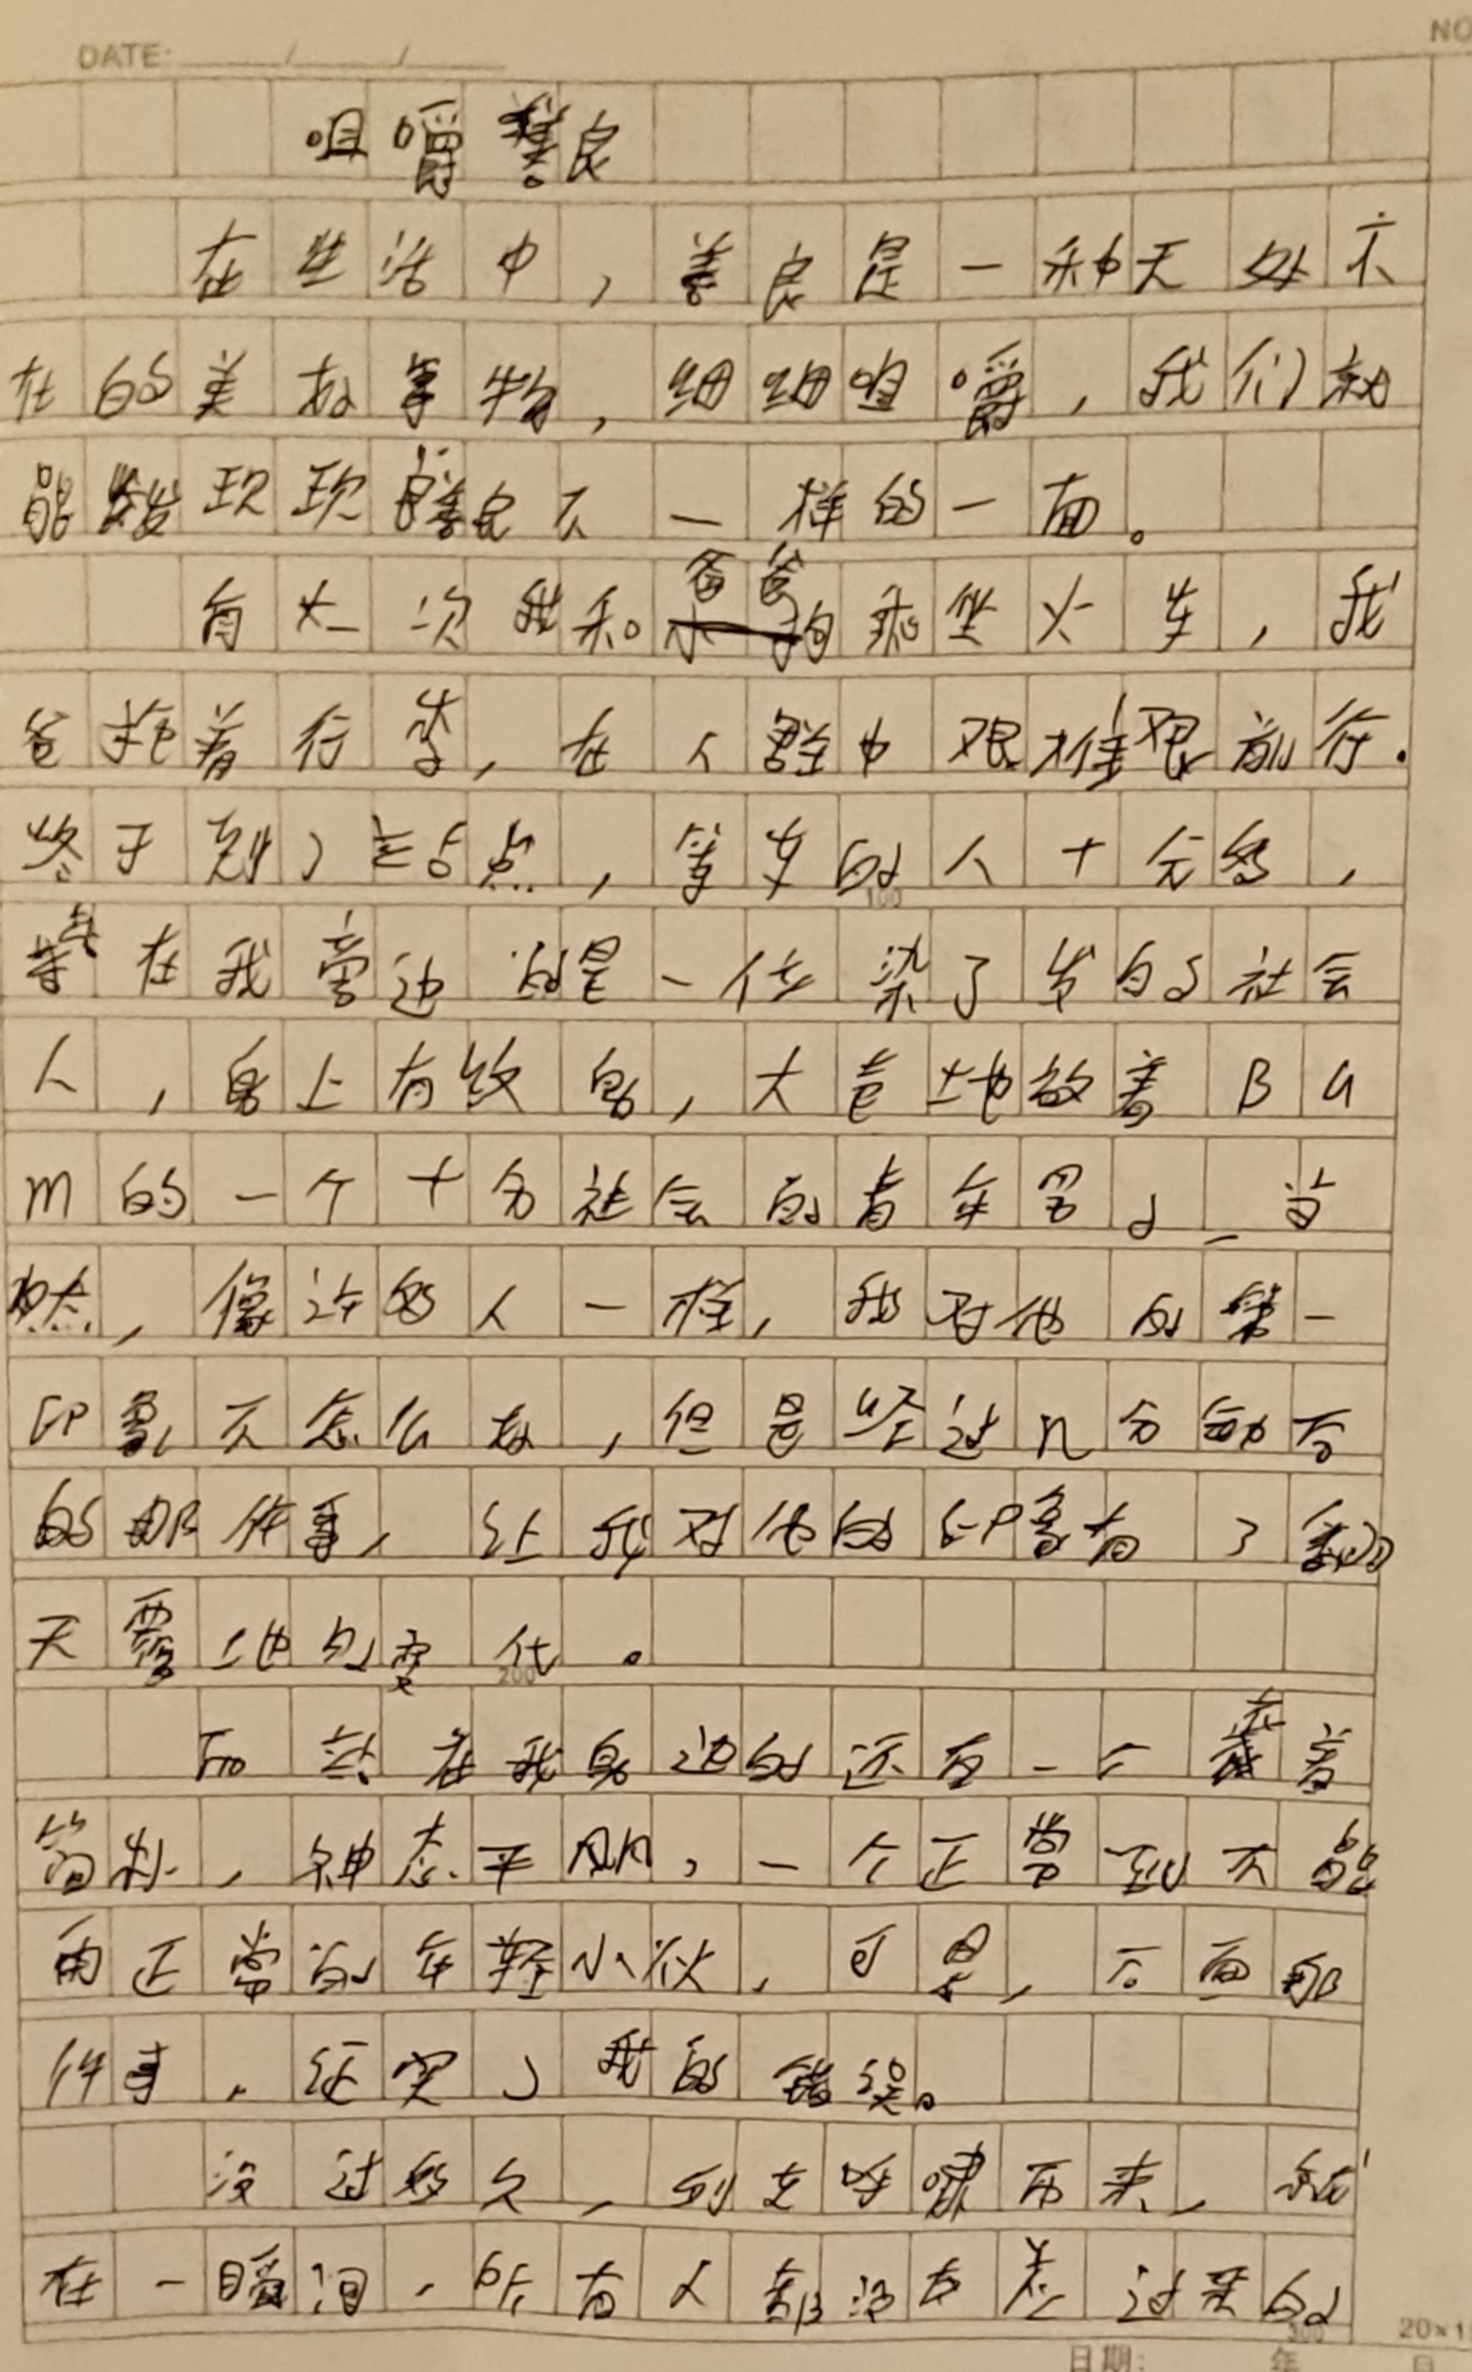 DATE: / /
NO
咀嚼善良
在生活中，善良是一种无处不
在的美好事物，细细咀嚼，我们就
能发现善良不一样的一面。
有一次我和爸爸乘坐火车，我
爸拖着行李，在人群中艰难前行.
终于到了站点，等车的人十分多，
在我旁边的是一位染了发的社会
人，身上有纹身，大声地放着BG
M的一个十分社会的青年男人，当
然，像许多人一样，我对他的第一
印象不怎么好，但是经过几分钟后
的那件事，让我对他的印象有了翻
天覆地的变化。
而站在我身边的还有一个衣着
简朴，神态平凡，一个正常到不能
再正常的年轻小伙，可是，后面那
件事，证实了我的错误。
没过多久，列车呼啸而来，就
在一瞬间，所有人都没有走过来的
100
200
300
20×1
日期： 年 日